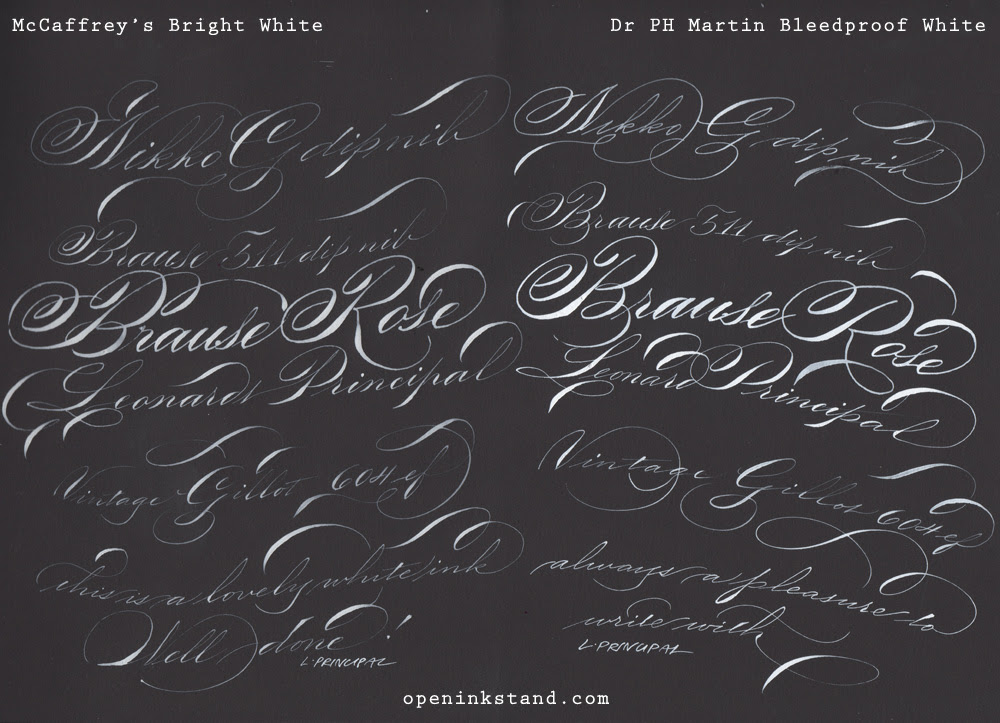 McCaffrey's Bright White
Nikko G dip nib
Brause 511 dip nib
Brause Rose
Leonardt Principal
Vintage Gillot 604 ef
this is a lovely white ink
Well done!
L·PRINCIPAL
Dr PH Martin Bleedproof White
Nikko G dip nib
Brause 511 dip nib
Brause Rose
Leonard Principal
Vintage Gillot 604 ef
always a pleasure to
write with
L·PRINCIPAL
openinkstand.com